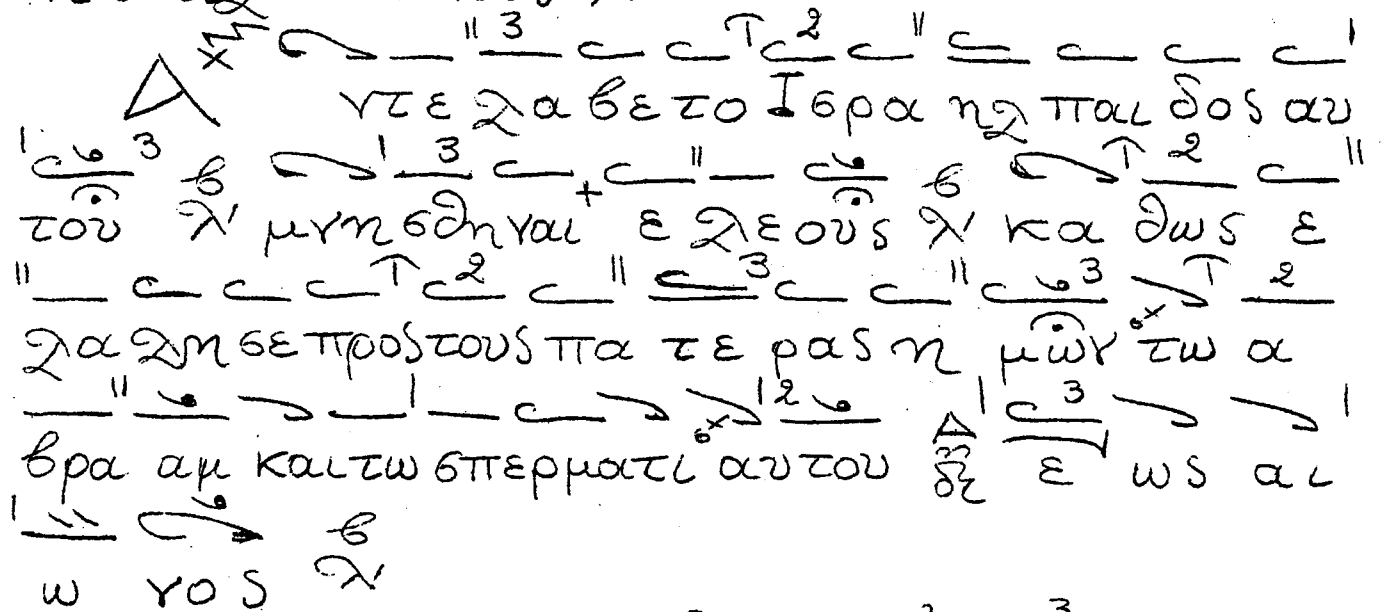 Α ντελαβετο Ισραηλ παιδος αυ
του μνησθηναι ελεους καθως ε
λαλησε προς τους πατερας ημων τω α
βρααμ και τω σπερματι αυτου εως αι
ωνος